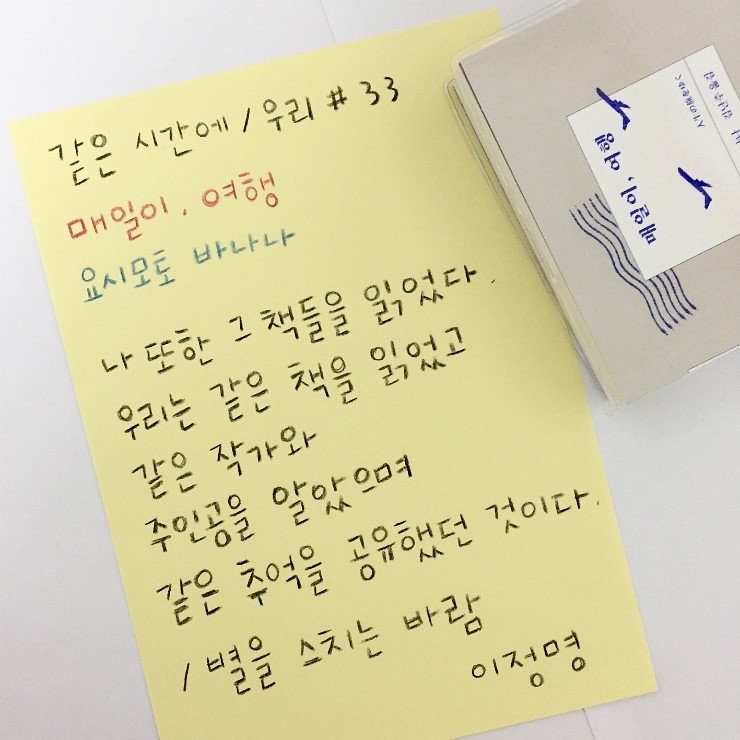 같은 시간에 / 우리 # 33
매일이, 여행
요시모토 바나나
나 또한 그 책들을 읽었다.
우리는 같은 책을 읽었고
같은 작가와
주인공을 알았으며
같은 추억을 공유했던 것이다.
/ 별을 스치는 바람
이정명
매일이, 여행